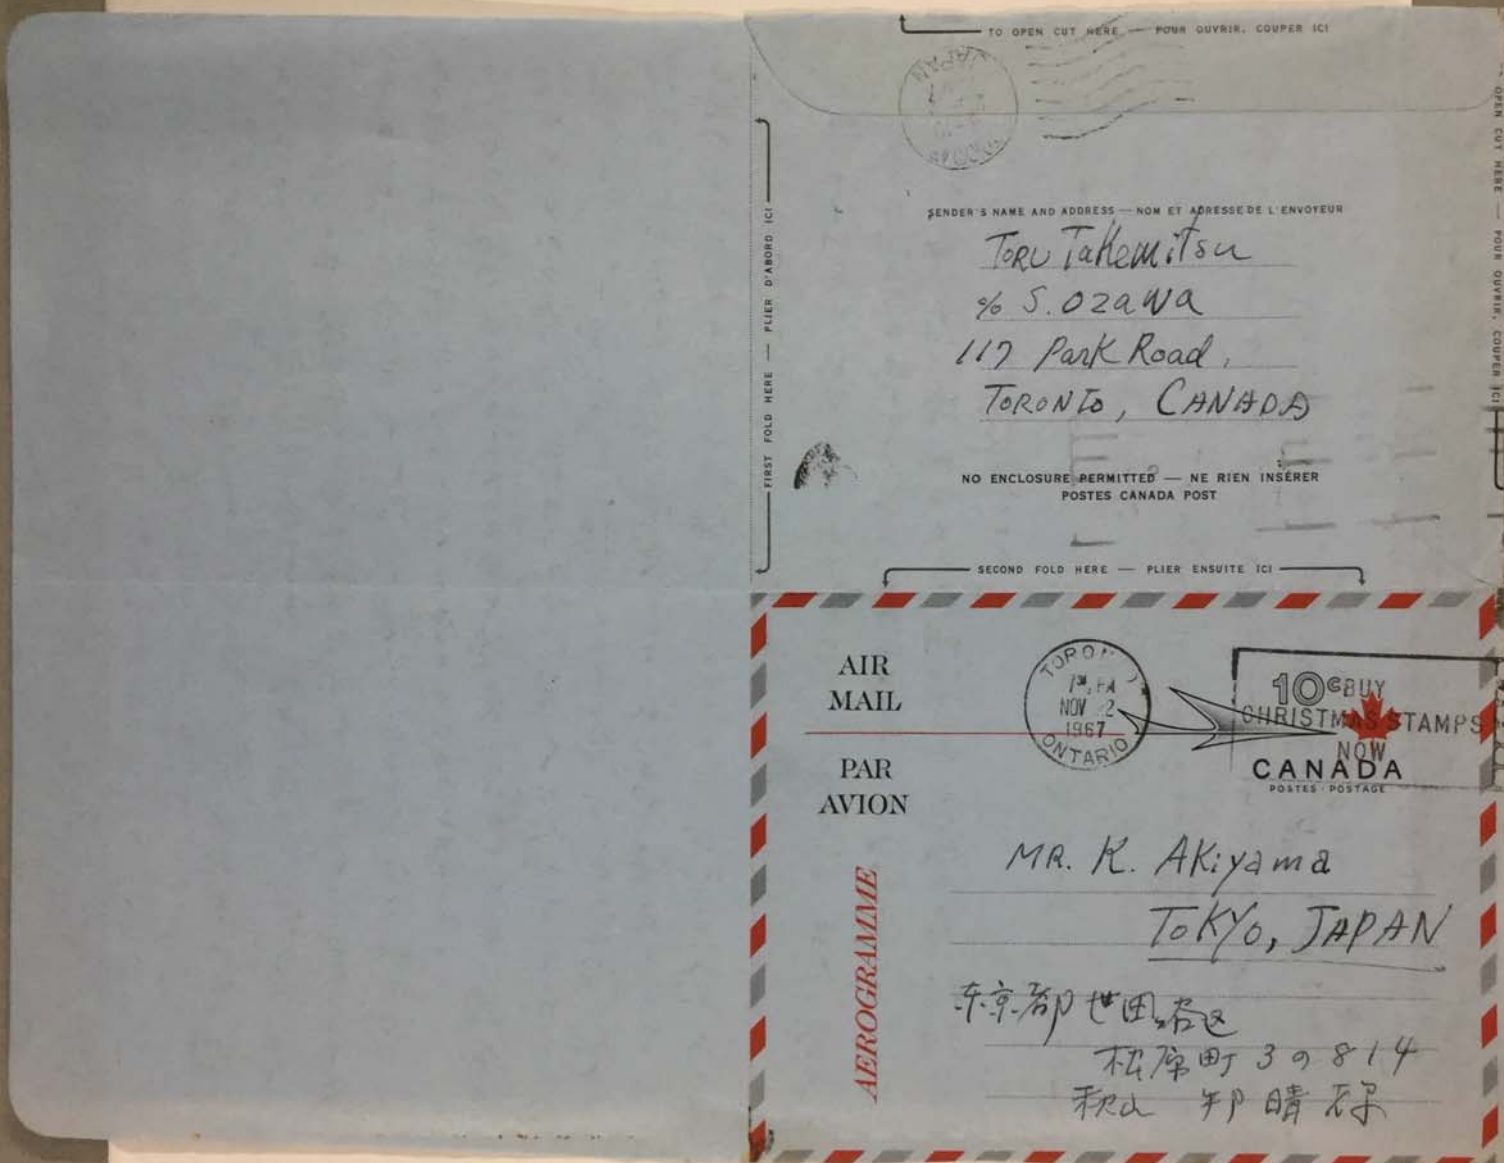 TO OPEN CUT HERE — POUR OUVRIR, COUPER ICI
JAPAN
OPEN CUT HERE — POUR OUVRIR, COUPER ICI
FIRST FOLD HERE — PLIER D'ABORD ICI
SENDER'S NAME AND ADDRESS — NOM ET ADRESSE DE L'ENVOYEUR
TORU TaKemiTsu
c/o S. OZaWa
117 ParK Road,
TORONTO, CANADA
NO ENCLOSURE PERMITTED — NE RIEN INSÉRER
POSTES CANADA POST
SECOND FOLD HERE — PLIER ENSUITE ICI
AIR
MAIL
PAR
AVION
TORONTO
NOV 2
1967
ONTARIO
10c
BUY
CHRISTMAS STAMPS
NOW
CANADA
POSTES · POSTAGE
AEROGRAMME
MR. K. AKiyama
TOKYO, JAPAN
東京都世田谷区
松原町3の814
秋山 邦晴様